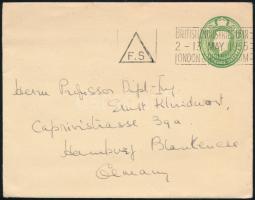 BRITISH INDUSTRIES FAIR
2-13 MAY 1955
LONDON
F.S
Herrn Professor Dipl-Ing.
Ernst
Caprivistrasse 39a
Hamburg Blankenese
Germany